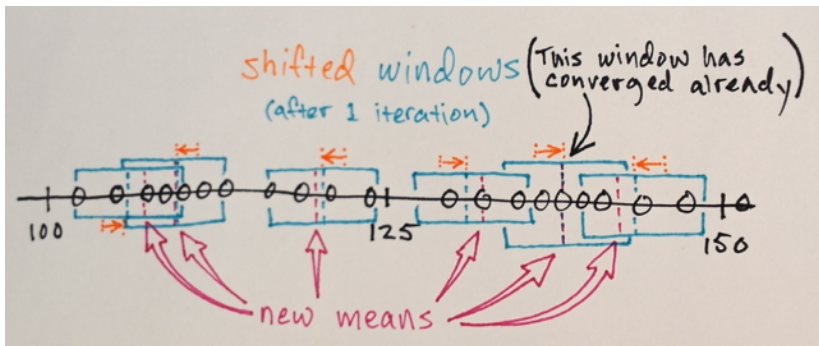 shifted windows
(after 1 iteration)
(This window has
converged already)
100
125
150
new means